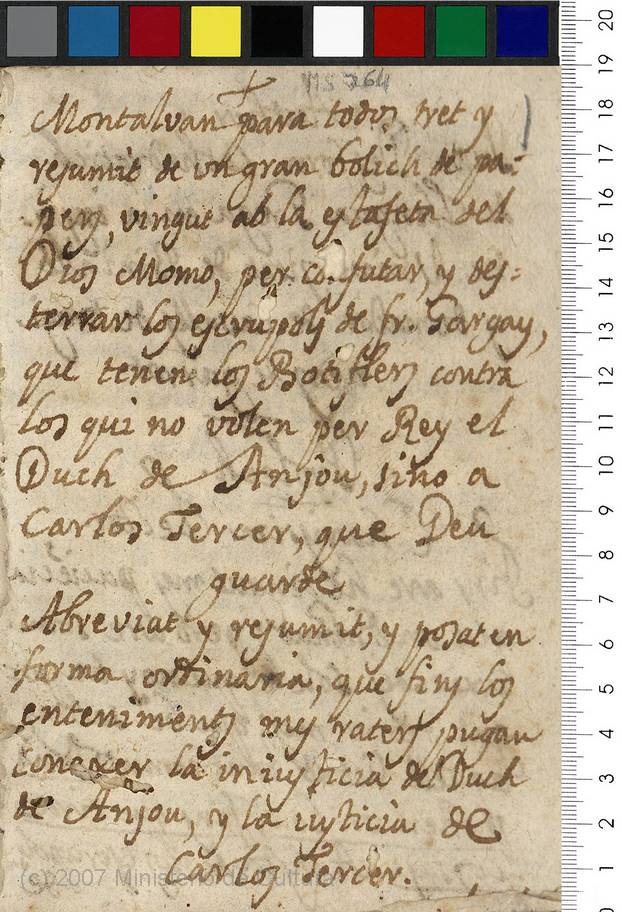 MS 764
Montalvan para todos tret y
resumit de un gran bolich de pa=
pers, vingut ab la estafeta del
Dios Momo, per confutar, y des=
terrar los escrupols de fr. Gargay,
que tenen los Botiflers contra
los qui no volen per Rey el
Duch de Anjou, sino a
Carlos Tercer, que Deu
guarde
Abreviat y resumit, y posat en
forma ordinaria, que fins los
enteniments mes raters pugan
conexer la iniusticia del Duch
de Anjou, y la iusticia de
Carlos Tercer.
(c) 2007 Ministerio de Cultura
20
19
18
17
16
15
14
13
12
11
10
9
8
7
6
5
4
3
2
1
0